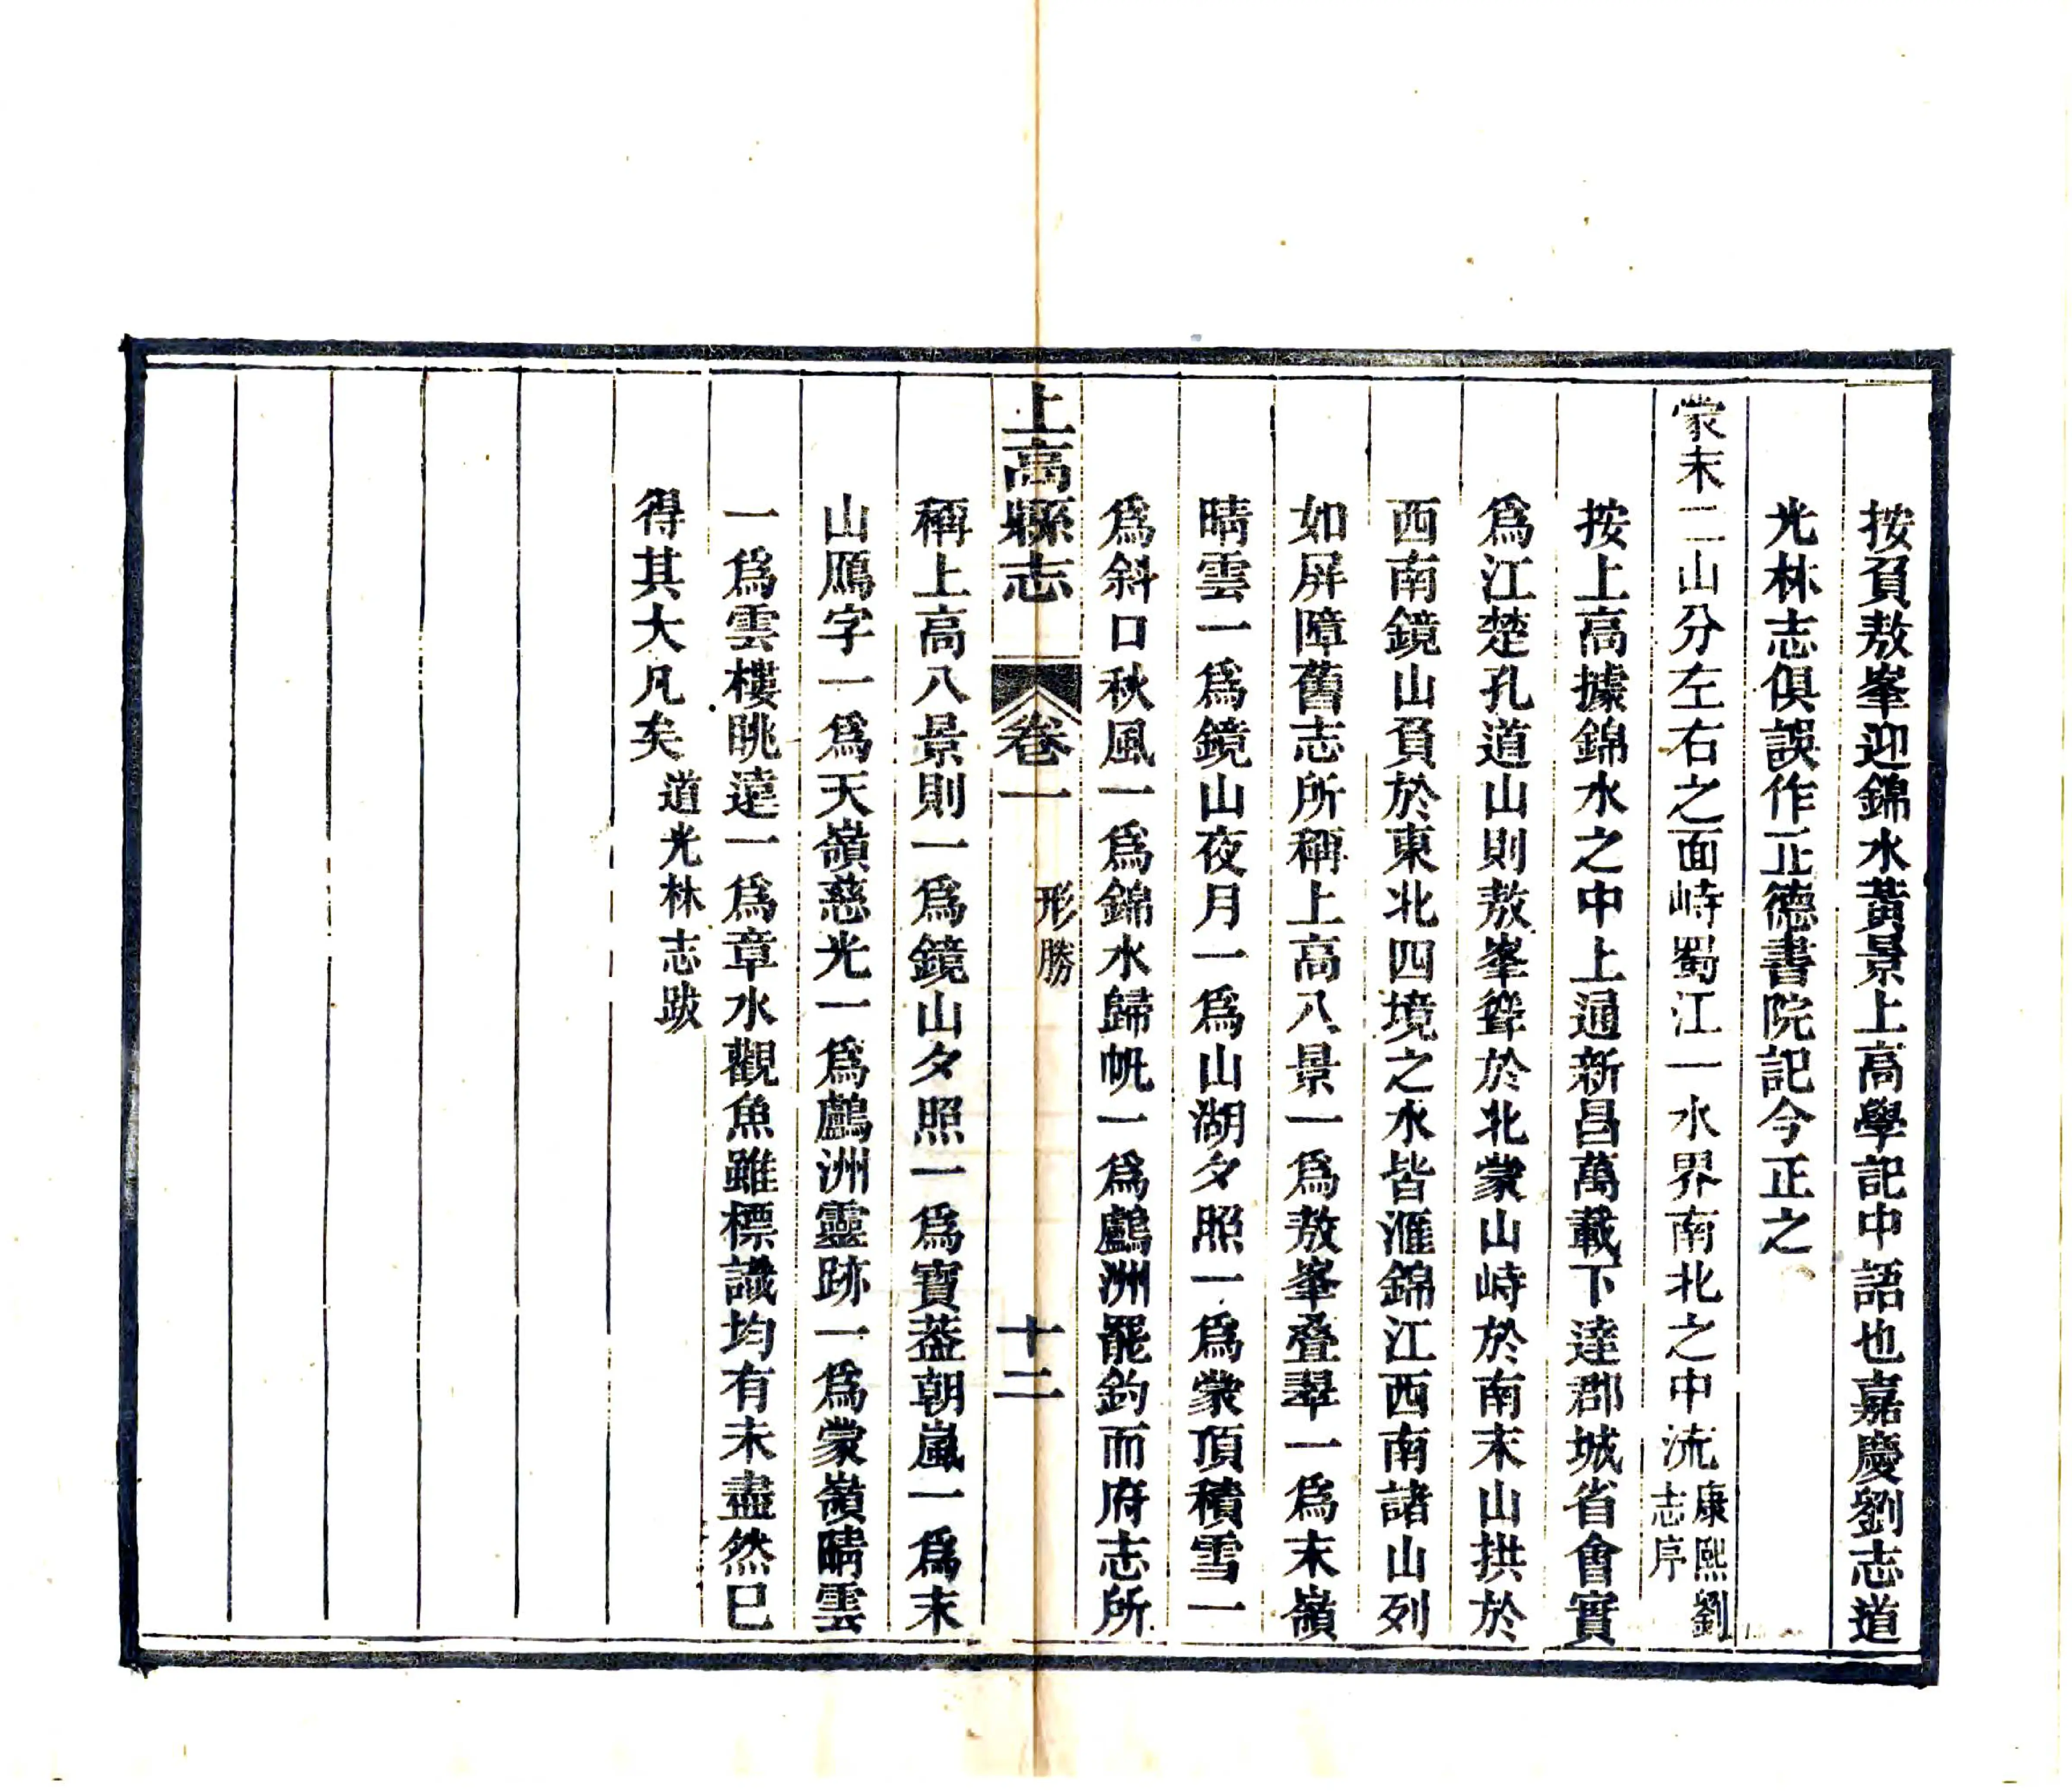 按負敖峯迎錦水黃景上高學記中語也嘉慶劉志道
光林志俱誤作正德書院記今正之
蒙末二山分左右之面峙蜀江一水界南北之中流康熙劉志序
按上高據錦水之中上通新昌萬載下達郡城省會實
為江楚孔道山則敖峯聳於北蒙山峙於南末山拱於
西南鏡山負於東北四境之水皆滙錦江西南諸山列
如屏障舊志所稱上高八景一為敖峯疊翠一為末嶺
晴雲一為鏡山夜月一為山湖夕照一為蒙頂積雪一
為斜口秋風一為錦水歸帆一為鸕洲罷釣而府志所
上高縣志 卷一 形勝 十二
稱上高八景則一為鏡山夕照一為寶葢朝嵐一為末
山鴈字一為天嶺慈光一為鸕洲靈跡一為蒙嶺晴雲
一為雲樓眺遠一為章水觀魚雖標識均有未盡然已
得其大凡矣道光林志跋